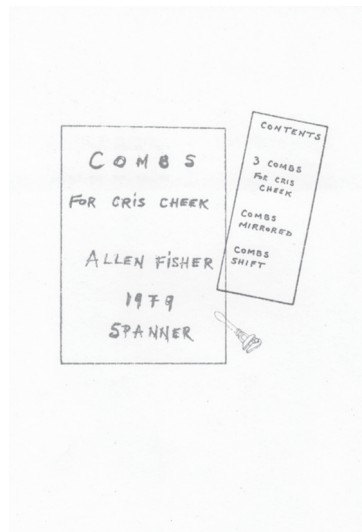 COMBS
FOR CRIS CHEEK
ALLEN FISHER
1979
SPANNER
CONTENTS
3 COMBS
FOR CRIS
CHEEK
COMBS
MIRRORED
COMBS
SHIFT